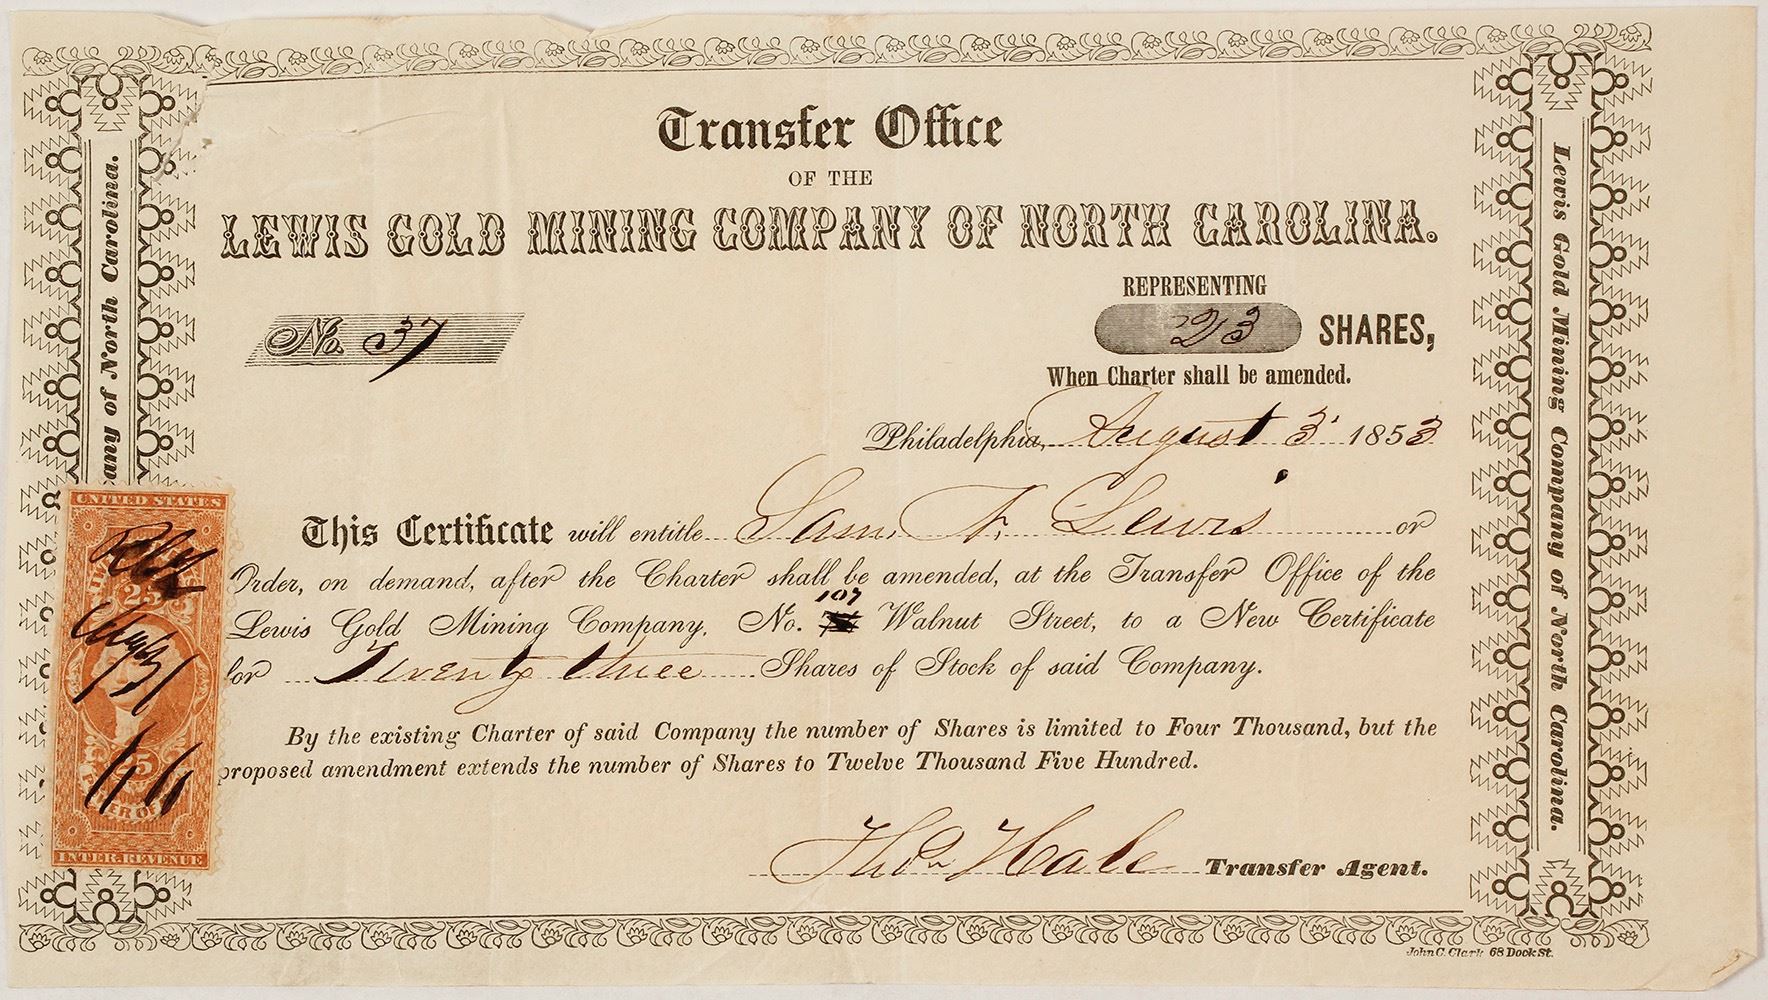 Transfer Office
OF THE
LEWIS GOLD MINING COMPANY OF NORTH CAROLINA.
REPRESENTING
No. 37
23 SHARES,
When Charter shall be amended.
Philadelphia, August 3 1853
This Certificate will entitle Sam. F. Lewis or
Order, on demand, after the Charter shall be amended, at the Transfer Office of the
107
Lewis Gold Mining Company, No. Walnut Street, to a New Certificate
for Twenty three Shares of Stock of said Company.
By the existing Charter of said Company the number of Shares is limited to Four Thousand, but the
proposed amendment extends the number of Shares to Twelve Thousand Five Hundred.
Thos Hale Transfer Agent.
John C. Clark 68 Dock St.
any of North Carolina.
Lewis Gold Mining Company of North Carolina.
UNITED STATES
25
25
INTER. REVENUE